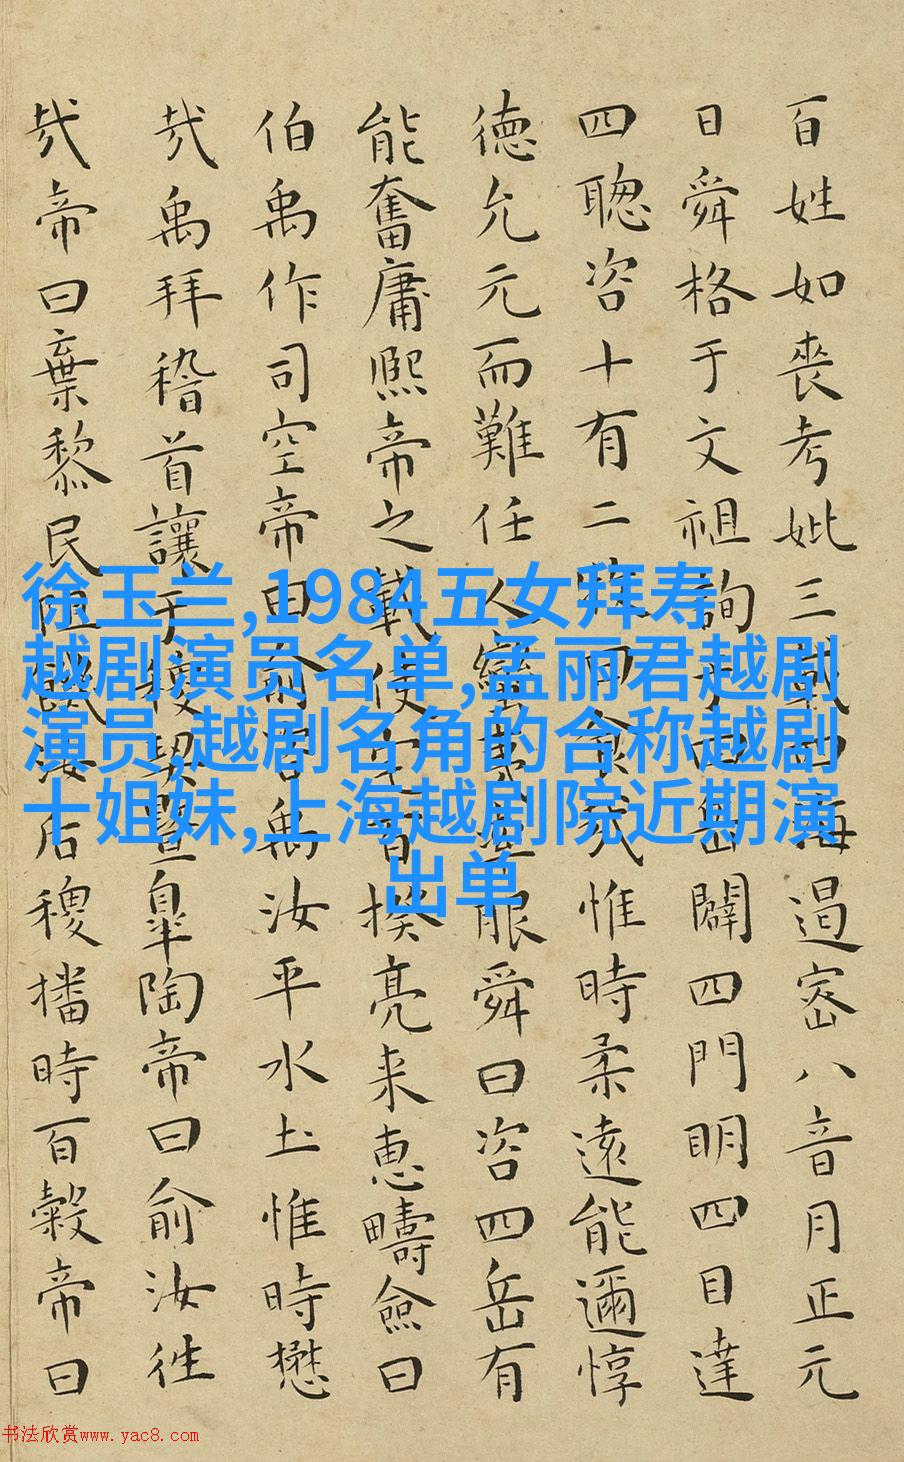 百姓如喪考妣三載四海遏密八音月正元
日舜格于文祖詢于四岳闢四門明四目達
四聰咨十有二牧曰食哉惟時柔遠能邇惇
德允元而難任人蠻夷率服舜曰咨四岳有
能奮庸熙帝之載使宅百揆亮采惠疇僉曰
伯禹作司空帝曰俞咨禹汝平水土惟時懋
哉禹拜稽首讓于稷契暨皐陶帝曰俞汝往
哉帝曰棄黎民阻飢汝后稷播時百穀帝曰
徐玉兰,1984五女拜寿
越剧演员名单,孟丽君越剧
演员,越剧名角的合称越剧
十姐妹,上海越剧院近期演
出单
书法欣赏www.yac8.com